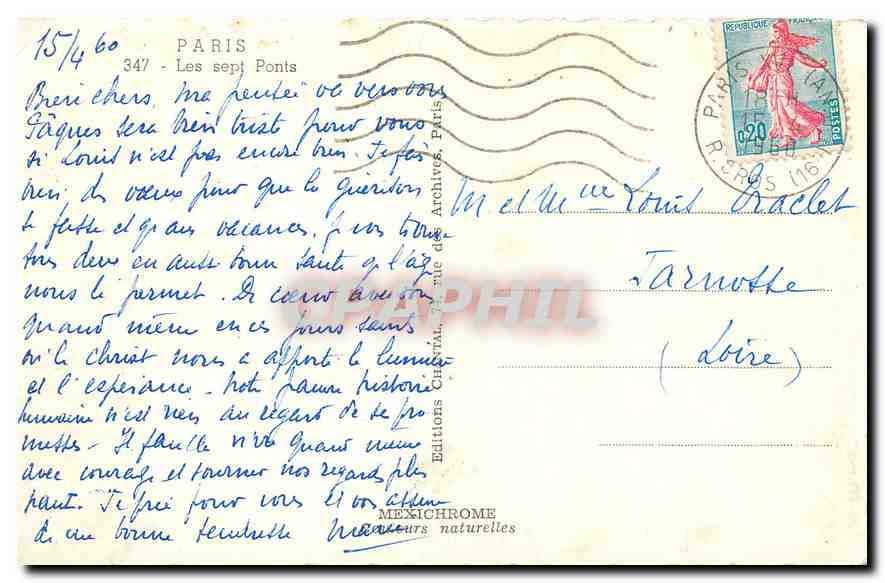 15/4 60
PARIS
347 - Les sept Ponts
Bien chers, ma pensée va vers vous
Pâques sera bien triste pour vous
si Louis n'est pas encore bien. Je fais
bien des vœux pour que la guérison
se fasse et qu'aux vacances, je vous trouve
tous deux en aussi bonne santé q. l'âge
nous le permet. De cœur avec vous
quand même en ces jours saints
où le Christ nous a apporté la lumière
et l'espérance. Notre pauvre histoire
humaine n'est rien au regard de ses pro-
messes - Il faut le vivre quand même
avec courage et tourner nos regards plus
haut. Je prie pour vous et vous assure
de ma bonne tendresse
Editions CHANTAL, 74, rue des Archives, Paris
MEXICHROME
Couleurs naturelles
CPAPHIL
REPUBLIQUE FRANÇAISE
0,20
POSTES
PARIS
15
1960
R. GROS (16
M et Mme Louis Oraclet
Jarnosse
(Loire)